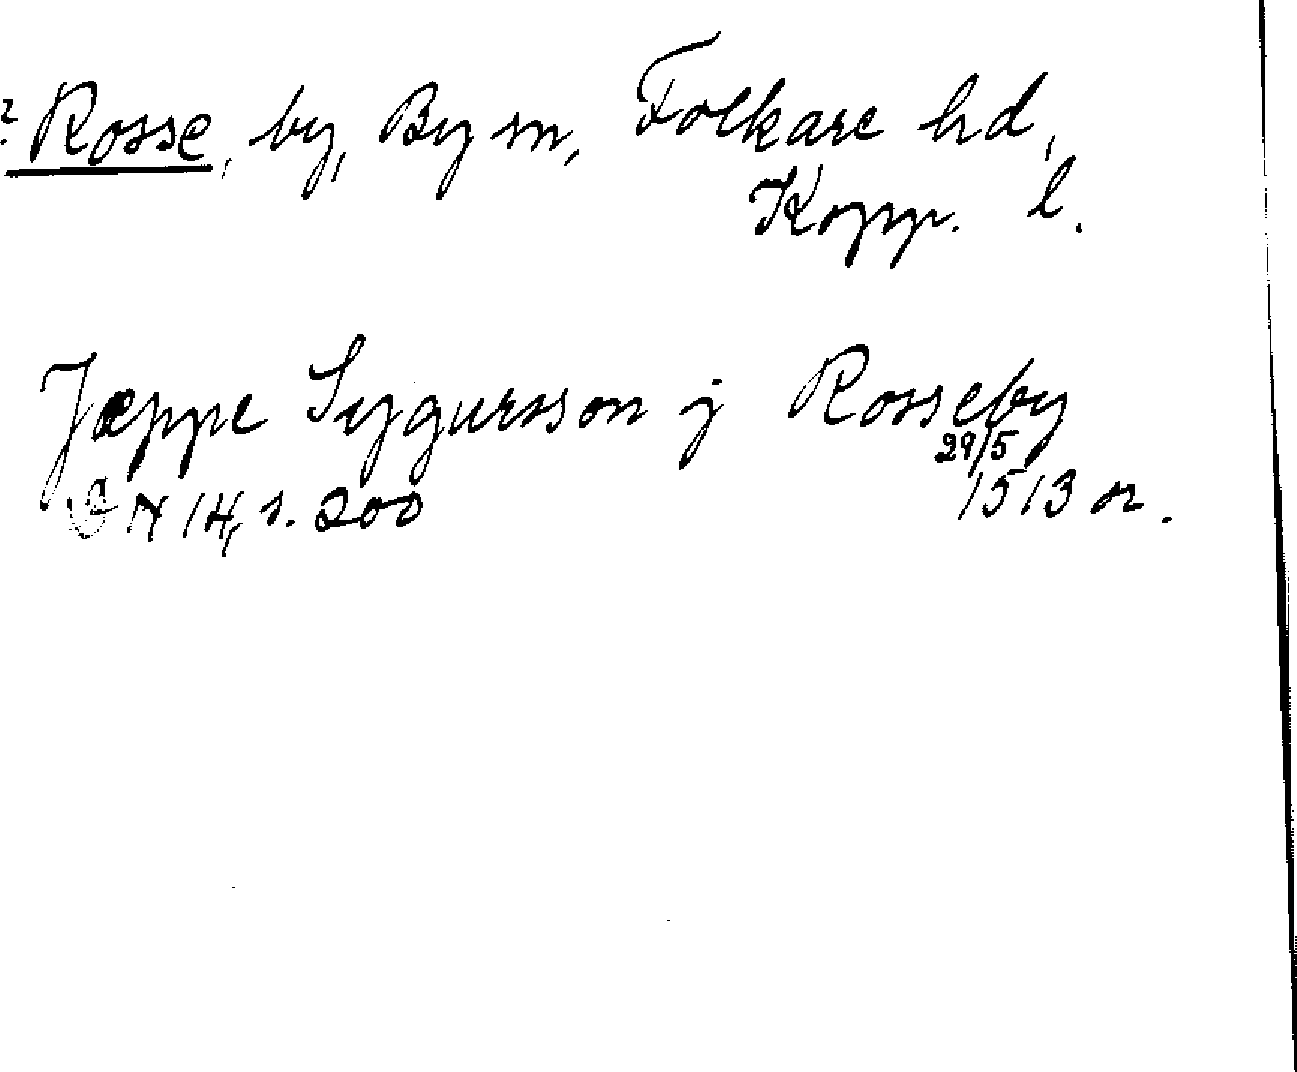 ? Rosse, by, By sn, Folkare hd,
Kopp. l.
Jæppe Sygursson j Rosseby
29/5
N 14, s. 200 1513 or.